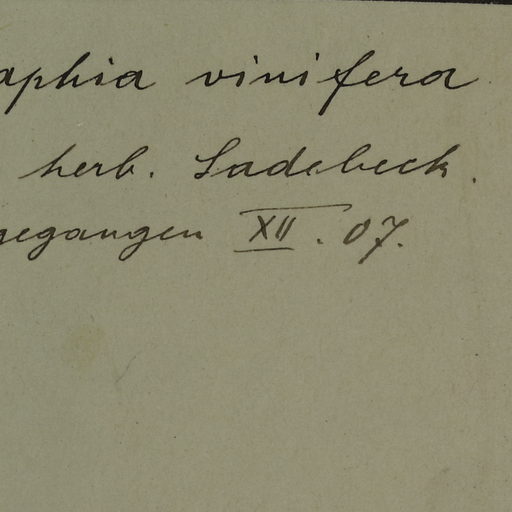 aphia vinifera
herb. Sadebeck.
gegangen XII. 07.